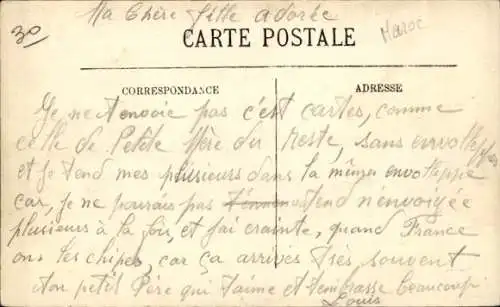 30
Ma Chère fille adorée
Maroc
CARTE POSTALE
CORRESPONDANCE
ADRESSE
Je ne t'envoie pas c'est cartes, comme
celle de Petite Mère du reste, sans envelloppes
et Je tend mes plusieurs dans la même envelloppe
car, je ne pourais pas tend n'envoiyée
plusieurs à la fois, et j'ai crainte, quand France
ons les chipes, car ça arrives très souvent
ton petit Père qui t'aime et t'embrasse beaucoup
Louis